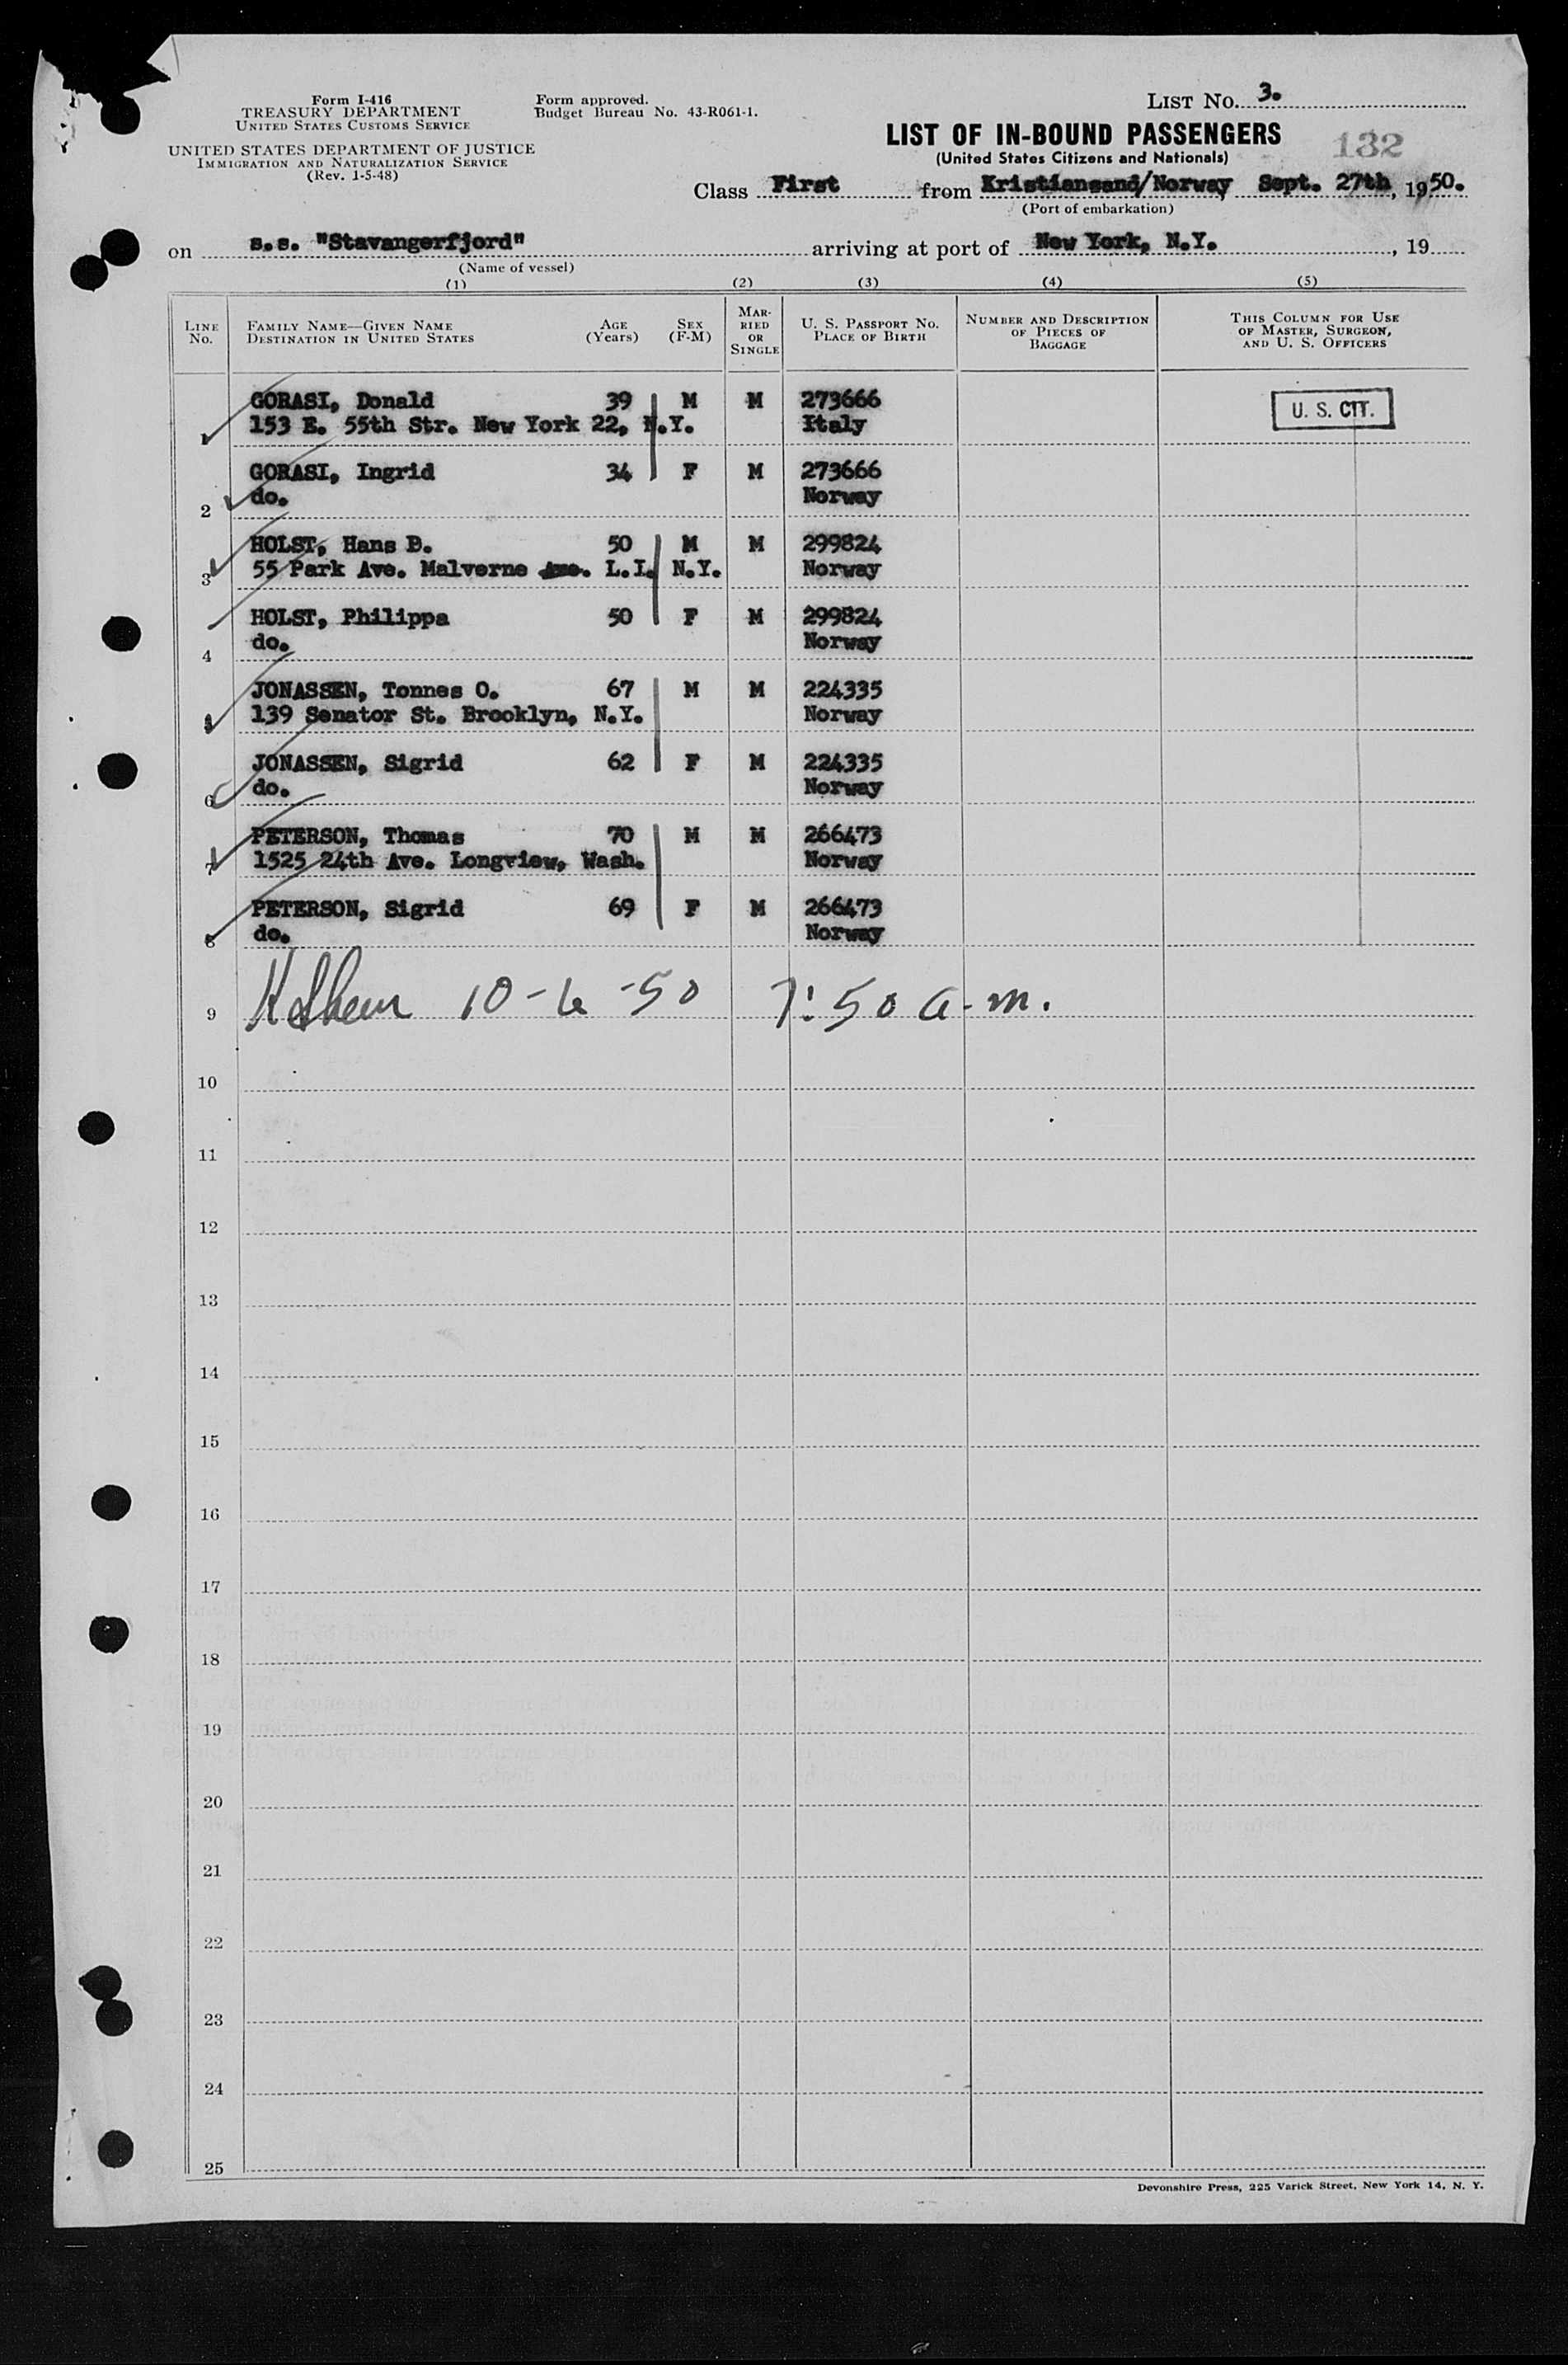 Form I-416
TREASURY DEPARTMENT
UNITED STATES CUSTOMS SERVICE
UNITED STATES DEPARTMENT OF JUSTICE
IMMIGRATION AND NATURALIZATION SERVICE
(Rev. 1-5-48)
Form approved.
Budget Bureau No. 43-R061-1.
LIST NO. 3.
LIST OF IN-BOUND PASSENGERS
(United States Citizens and Nationals)
132
Class First from Kristiansand/Norway Sept. 27th, 1950.
(Port of embarkation)
on s.s. "Stavangerfjord" arriving at port of New York, N.Y., 19
(Name of vessel)
(1) (2) (3) (4) (5)
LINE NO.
FAMILY NAME—GIVEN NAME
DESTINATION IN UNITED STATES
AGE (YEARS)
SEX (F-M)
MARRIED OR SINGLE
U. S. PASSPORT NO.
PLACE OF BIRTH
NUMBER AND DESCRIPTION OF PIECES OF BAGGAGE
THIS COLUMN FOR USE OF MASTER, SURGEON, AND U. S. OFFICERS
GORASI, Donald 39 M M 273666
U. S. CIT.
1 153 E. 55th Str. New York 22, N.Y. Italy
GORASI, Ingrid 34 F M 273666
2 do. Norway
HOLST, Hans B. 50 M M 299824
3 55 Park Ave. Malverne Ave. L.I. N.Y. Norway
HOLST, Philippa 50 F M 299824
4 do. Norway
JONASSEN, Tonnes O. 67 M M 224335
5 139 Senator St. Brooklyn, N.Y. Norway
JONASSEN, Sigrid 62 F M 224335
6 do. Norway
PETERSON, Thomas 70 M M 266473
7 1525 24th Ave. Longview, Wash. Norway
PETERSON, Sigrid 69 F M 266473
8 do. Norway
9 10-6-50 7:50 a.m.
10
11
12
13
14
15
16
17
18
19
20
21
22
23
24
25
Devonshire Press, 225 Varick Street, New York 14, N. Y.